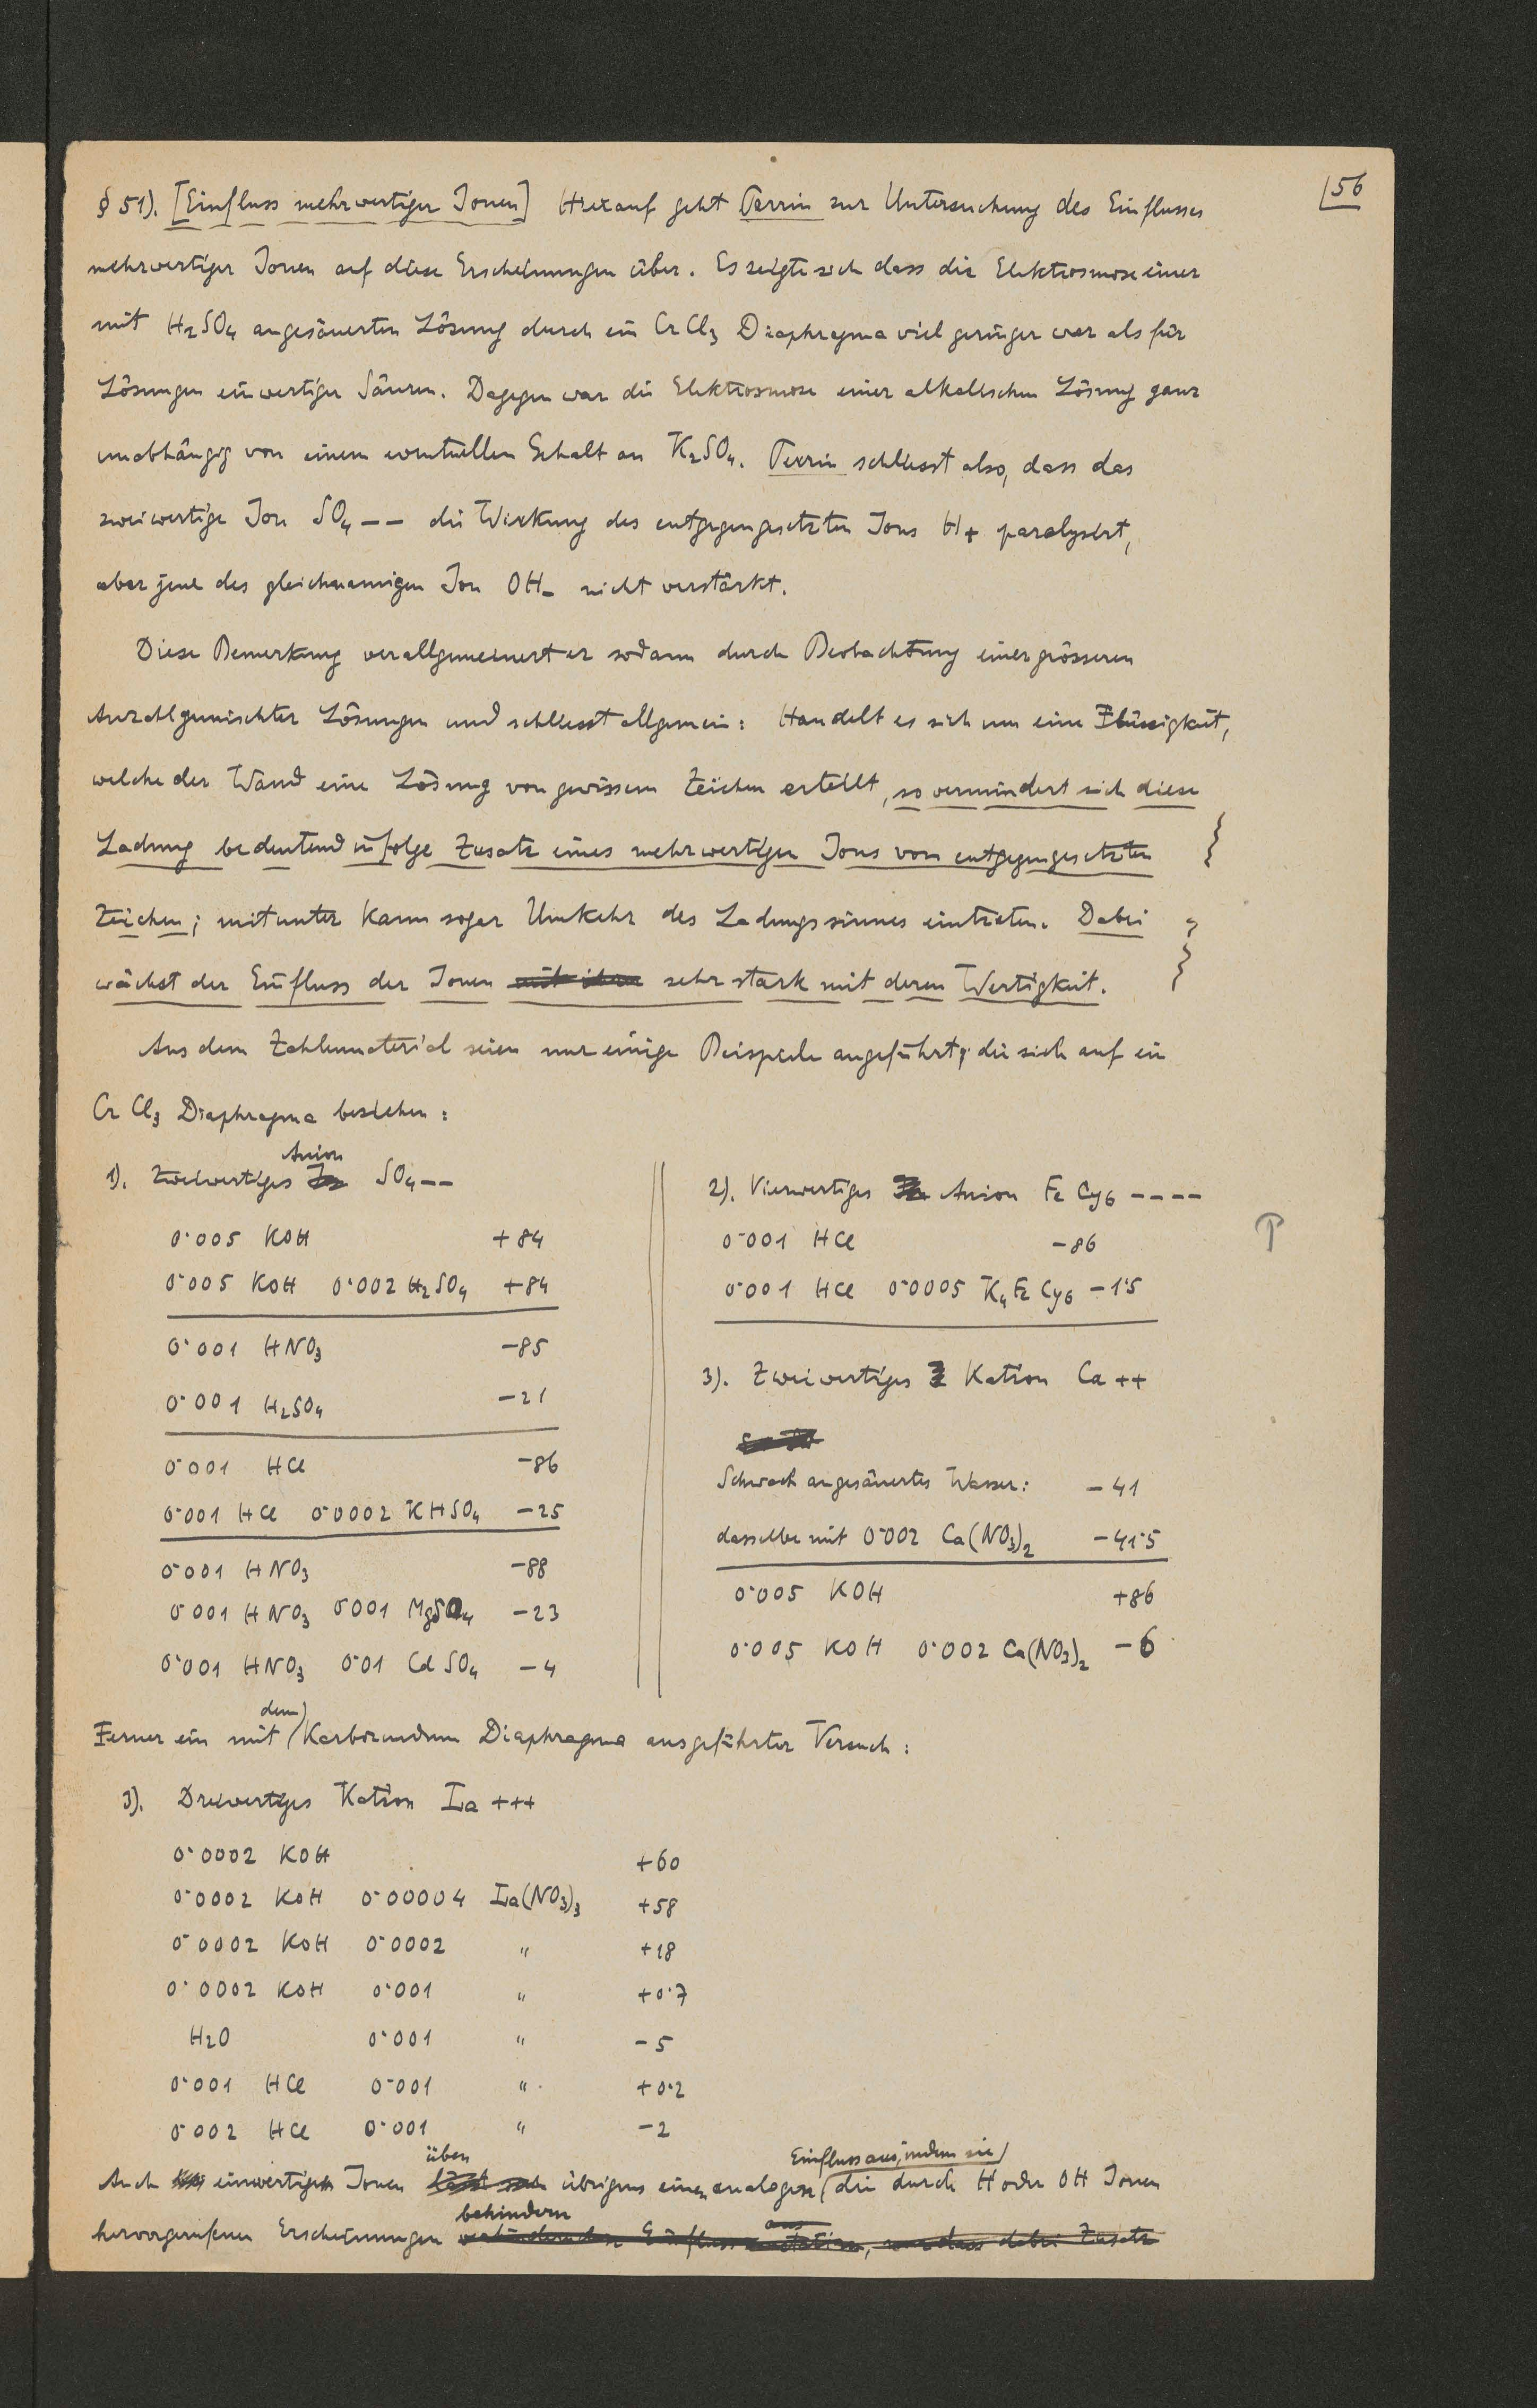 56
§ 51). [Einfluss mehrwertiger Ionen] Hierauf geht Perrin zur Untersuchung des Einflusses
mehrwertiger Ionen auf diese Erscheinungen über. Es zeigte sich dass die Elektrosmose einer
mit H2SO4 angesäuerten Lösung durch ein CrCl3 Diaphragma viel geringer war als für
Lösungen einwertiger Säuren. Dagegen war die Elektrosmose einer alkalischen Lösung ganz
unabhängig von einem eventuellen Gehalt an K2SO4. Perrin schliesst also, dass das
zweiwertige Ion SO4 -- die Wirkung des entgegengesetzten Ions H+ paralysiert,
aber jene des gleichnamigen Ion OH- nicht verstärkt.
Diese Bemerkung verallgemeinert er sodann durch Beobachtung einer grösseren
Anzahl gemischter Lösungen und schliesst allgemein: Handelt es sich um eine Flüssigkeit,
welche der Wand eine Lösung von gewissem Zeichen erteilt, so vermindert sich diese
Ladung bedeutend infolge Zusatz eines mehrwertigen Ions vom entgegengesetzten
Zeichen; mitunter kann sogar Umkehr des Ladungssinnes eintreten. Dabei
wächst der Einfluss der Ionen mit ihrer sehr stark mit deren Wertigkeit.
Aus dem Zahlenmaterial seien nur einige Beispiele angeführt, die sich auf ein
CrCl3 Diaphragma beziehen:
Anion
1). Zweiwertiges SO4--
0·005 KOH +84
0·005 KOH 0·002 H2SO4 +84
0·001 HNO3 -85
0·001 H2SO4 -21
0·001 HCl -86
0·001 HCl 0·0002 KHSO4 -25
0·001 HNO3 -88
0·001 HNO3 0·001 MgSO4 -23
0·001 HNO3 0·01 CdSO4 -4
2). Vierwertiges Anion FeCy6 ----
0·001 HCl -86
0·001 HCl 0·0005 K4FeCy6 -1·5
3). Zweiwertiges Kation Ca++
Schwach angesäuertes Wasser: -41
dasselbe mit 0·002 Ca(NO3)2 -41·5
0·005 KOH +86
0·005 KOH 0·002 Ca(NO3)2 -6
dem
Ferner ein mit Karborundum Diaphragma ausgeführter Versuch:
3). Dreiwertiges Kation La+++
0·0002 KOH +60
0·0002 KOH 0·00004 La(NO3)3 +58
0·0002 KOH 0·0002 " +18
0·0002 KOH 0·001 " +0·7
H2O 0·001 " -5
0·001 HCl 0·001 " +0·2
0·002 HCl 0·001 " -2
üben Einfluss aus, indem sie
Auch einwertige Ionen übrigens einen analogen die durch H oder OH Ionen
behindern aus
hervorgerufenen Erscheinungen Einfluss, nur dass dabei Zusatz